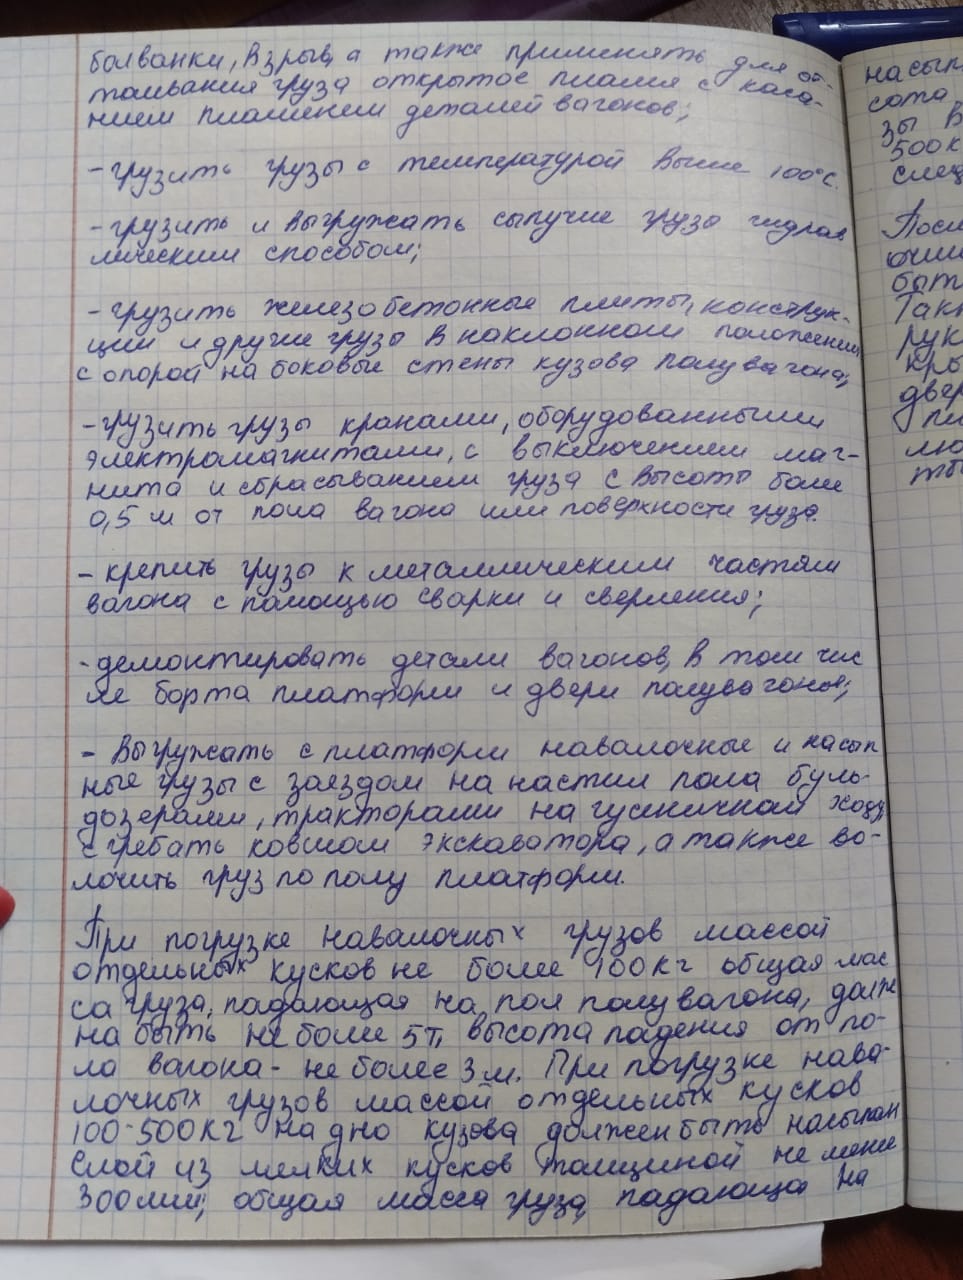 болванки, взрыв, а также применять для от-
таивания груза открытое пламя с каса-
нием пламенем деталей вагонов;
- грузить грузы с температурой выше 100°С.
- грузить и выгружать сыпучие груза гидрав
лическим способом;
- грузить железобетонные плиты, конструк-
ции и другие грузы в наклонном положении
с опорой на боковые стены кузова полувагона;
- грузить грузы кранами, оборудованными
электромагнитами, с выключением маг-
нита и сбрасыванием груза с высоты более
0,5 м от пола вагона или поверхности груза.
- крепить грузы к металлическим частям
вагона с помощью сварки и сверления;
- демонтировать детали вагонов, в том чис
ле борта платформ и двери полувагонов;
- Выгружать с платформ навалочные и насып
ные грузы с заездом на настил пола буль-
дозерами, тракторами на гусеничном ходу,
сгребать ковшом экскаватора, а также во-
лочить груз по полу платформ.
При погрузке навалочных грузов массой
отдельных кусков не более 100кг общая мас
са груза, падающая на пол полувагона, долж
на быть не боли 5т, высота падения от по-
ла вагона - не более 3м. При погрузке нава-
лочных грузов массой отдельных кусков
100-500кг на дно кузова должен быть насыпан
Слой из мелких кусков толщиной не мене
300мм; общая масса груза, падающа на
насып
сота
зы в
500к
спец
Посл
очи
быт
Такж
рук
кры
двер
пи
лю
ты